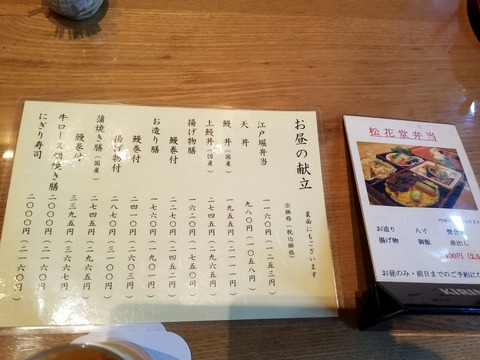 お昼の献立
裏面にもございます
※価格(税込価格)
江戸堀弁当 一一六〇円(一二五三円)
天丼 九八〇円(一〇五八円)
鰻丼(国産) 一九五五円(二一一一円)
上鰻丼(国産) 二七四五円(二九六五円)
揚げ物膳 一六二〇円(一七五〇円)
鰻巻付 二二七〇円(二四五二円)
お造り膳 一七六〇円(一九〇一円)
鰻巻付 二四一〇円(二六〇三円)
揚げ物付 二八七〇円(三一〇〇円)
蒲焼き膳(国産) 二七四五円(二九六五円)
鰻巻付 三三九五円(三六六七円)
牛ロース朴焼き膳 二〇〇〇円(二一六〇円)
にぎり寿司 二〇〇〇円(二一六〇円)
松花堂弁当
お造り 八寸
揚げ物 御飯 赤出し
お昼のみ・前日までのご予約に
KIRIN